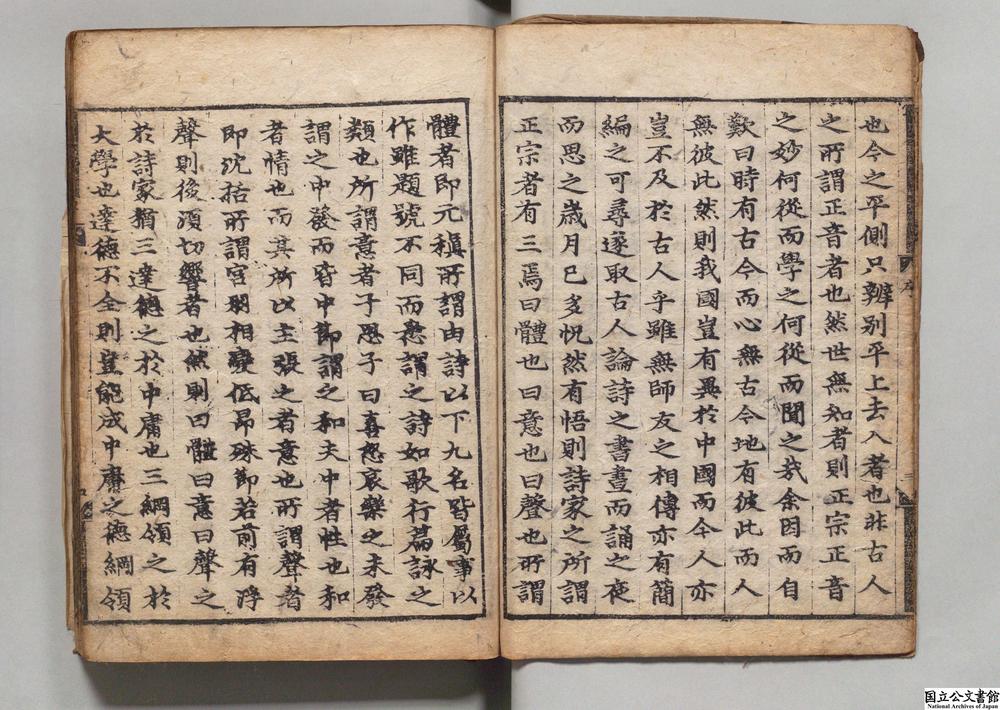 也今之平側只辨别平上去入者也非古人
之所謂正音者也然世無知者則正宗正音
之妙何從而學之何從而聞之哉余因而自
歎曰時有古今而心無古今地有彼此而人
無彼此然則我國豈有異於中國而今人亦
豈不及於古人乎雖無師友之相傳亦有簡
編之可尋遂取古人論詩之書晝而誦之夜
而思之歲月已多怳然有悟則詩家之所謂
正宗者有三焉曰體也曰意也曰聲也所謂
體者即元稹所謂由詩以下九名皆屬事以
作雖題號不同而悉謂之詩如歌行篇詠之
類也所謂意者子思子曰喜怒哀樂之未發
謂之中發而皆中節謂之和夫中者性也和
者情也而其所以主張之者意也所謂聲者
即沈括所謂宮羽相變低昂殊節若前有浮
聲則後須切響者也然則曰體曰意曰聲之
於詩家猶三達德之於中庸也三綱領之於
大學也達德不全則豈能成中庸之德綱領
國立公文書館
National Archives of Japan